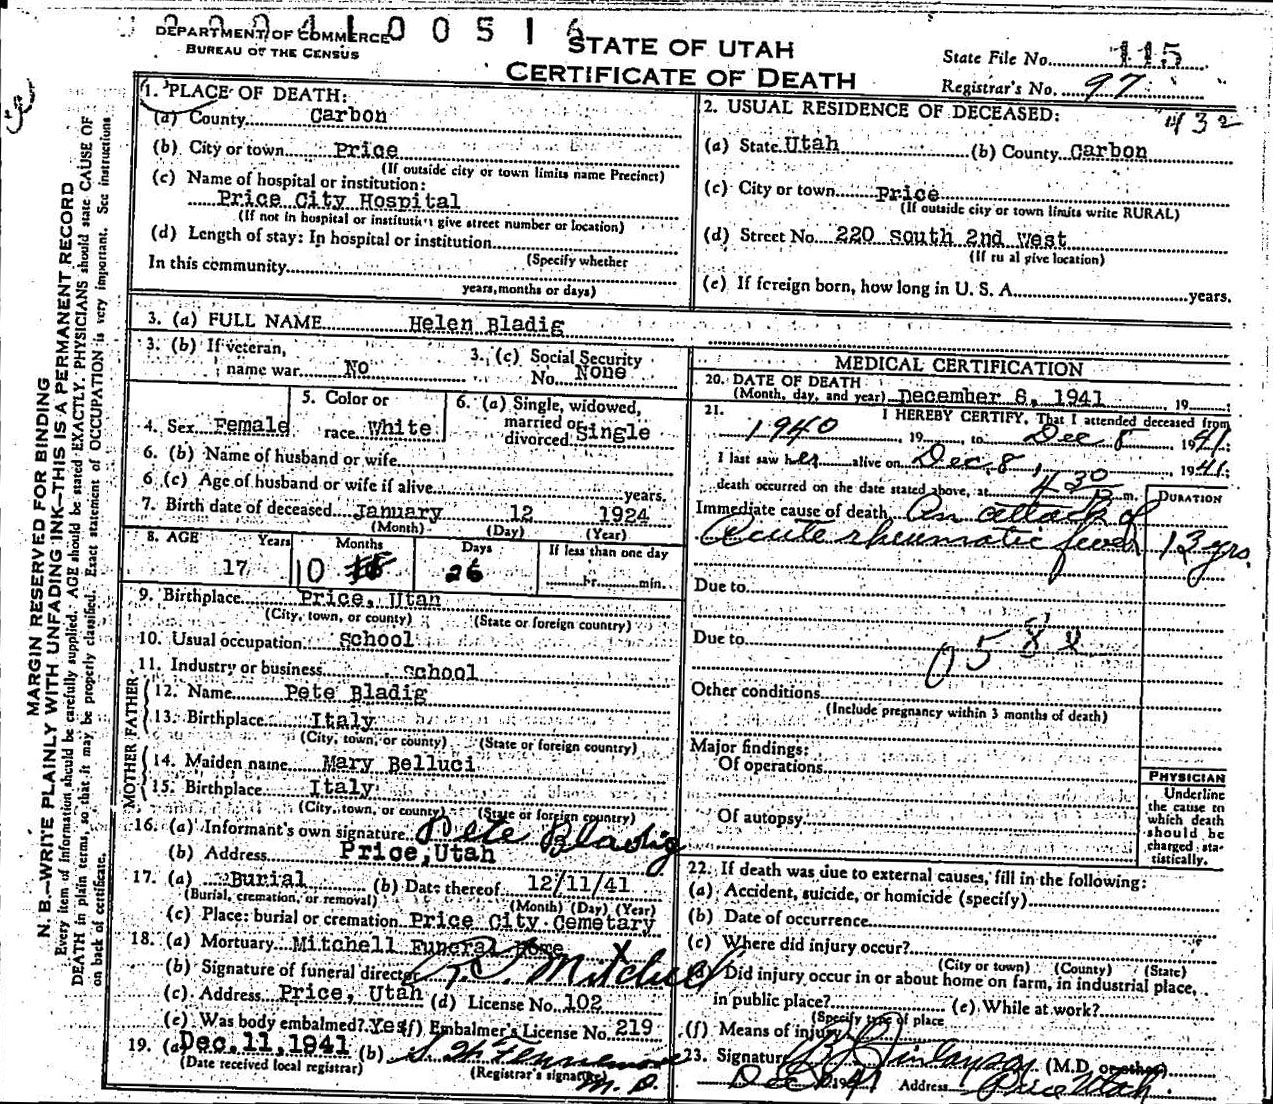 DEPARTMENT OF COMMERCE
BUREAU OF THE CENSUS
0 0 5 1
STATE OF UTAH
CERTIFICATE OF DEATH
State File No. 115
Registrar's No. 97
432
MARGIN RESERVED FOR BINDING
N. B.—WRITE PLAINLY WITH UNFADING INK—THIS IS A PERMANENT RECORD
Every item of information should be carefully supplied. AGE should be stated EXACTLY. PHYSICIANS should state CAUSE OF
DEATH in plain terms, so that it may be properly classified. Exact statement of OCCUPATION is very important. See instructions
on back of certificate.
1. PLACE OF DEATH:
(a) County Carbon
(b) City or town Price
(If outside city or town limits name Precinct)
(c) Name of hospital or institution:
Price City Hospital
(If not in hospital or institution give street number or location)
(d) Length of stay: In hospital or institution
(Specify whether
In this community
years, months or days)
2. USUAL RESIDENCE OF DECEASED:
(a) State Utah (b) County Carbon
(c) City or town Price
(If outside city or town limits write RURAL)
(d) Street No. 220 South 2nd West
(If rural give location)
(e) If foreign born, how long in U. S. A. years.
3. (a) FULL NAME Helen Bladig
3. (b) If veteran,
name war No
3. (c) Social Security
No. None
4. Sex Female
5. Color or
race White
6. (a) Single, widowed,
married or
divorced Single
6. (b) Name of husband or wife
6 (c) Age of husband or wife if alive years.
7. Birth date of deceased January 12 1924
(Month) (Day) (Year)
8. AGE Years Months Days If less than one day
17 10 26 hr. min.
9. Birthplace Price, Utah
(City, town, or county) (State or foreign country)
10. Usual occupation School
11. Industry or business school
FATHER
12. Name Pete Bladig
13. Birthplace Italy
(City, town, or county) (State or foreign country)
MOTHER
14. Maiden name Mary Belluci
15. Birthplace Italy
(City, town, or county) (State or foreign country)
16. (a) Informant's own signature Pete Bladig
(b) Address Price, Utah
17. (a) Burial (b) Date thereof 12/11/41
(Burial, cremation, or removal) (Month) (Day) (Year)
(c) Place: burial or cremation Price City Cemetary
18. (a) Mortuary Mitchell Funeral Home
(b) Signature of funeral director Mitchell
(c) Address Price, Utah (d) License No. 102
(e) Was body embalmed? Yes (f) Embalmer's License No. 219
19. (a) Dec. 11, 1941 (b) M.D.
(Date received local registrar) (Registrar's signature)
MEDICAL CERTIFICATION
20. DATE OF DEATH
(Month, day, and year) December 8, 1941 , 19
21. I HEREBY CERTIFY, That I attended deceased from
1940 , 19 , to Dec 8 1941.
I last saw her alive on Dec. 8, , 1941.
death occurred on the date stated above, at 4 30 P. m.
DURATION
Immediate cause of death An attack of
Acute rheumatic fever 13 yrs.
Due to
Due to
058
Other conditions
(Include pregnancy within 3 months of death)
Major findings:
Of operations
Of autopsy
PHYSICIAN
Underline
the cause to
which death
should be
charged sta-
tistically.
22. If death was due to external causes, fill in the following:
(a) Accident, suicide, or homicide (specify)
(b) Date of occurrence
(c) Where did injury occur?
(City or town) (County) (State)
(d) Did injury occur in or about home on farm, in industrial place,
in public place? (e) While at work?
(Specify type of place
(f) Means of injury
23. Signature (M.D. or other)
Dec 1941 Address Price Utah